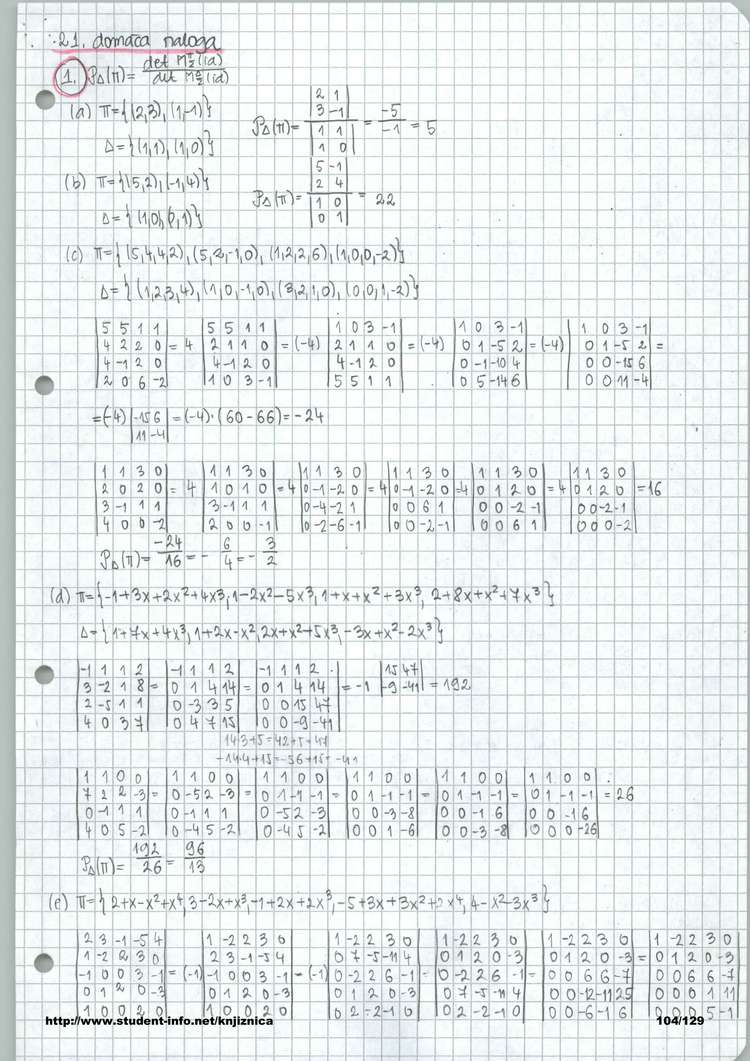 21. domača naloga
1. P_Δ(π) = det M_Σ^π(id) / det M_Σ^Δ(id)
(a) π = {(2,3), (1,-1)}
Δ = {(1,1), (1,0)}
P_Δ(π) = |2 1; 3 -1| / |1 1; 1 0| = -5/-1 = 5
(b) π = {(5,2), (-1,4)}
Δ = {(1,0), (0,1)}
P_Δ(π) = |5 -1; 2 4| / |1 0; 0 1| = 22
(c) π = {(5,4,4,2), (5,2,-1,0), (1,2,2,6), (1,0,0,-2)}
Δ = {(1,2,3,4), (1,0,-1,0), (3,2,1,0), (0,0,1,-2)}
|5 5 1 1; 4 2 2 0; 4 -1 2 0; 2 0 6 -2| = 4 |5 5 1 1; 2 1 1 0; 4 -1 2 0; 1 0 3 -1| = (-4) |1 0 3 -1; 2 1 1 0; 4 -1 2 0; 5 5 1 1| = (-4) |1 0 3 -1; 0 1 -5 2; 0 -1 -10 4; 0 5 -14 6| = (-4) |1 0 3 -1; 0 1 -5 2; 0 0 -15 6; 0 0 11 -4| =
= (-4) |-15 6; 11 -4| = (-4)·(60-66) = -24
|1 1 3 0; 2 0 2 0; 3 -1 1 1; 4 0 0 -2| = 4 |1 1 3 0; 1 0 1 0; 3 -1 1 1; 2 0 0 -1| = 4 |1 1 3 0; 0 -1 -2 0; 0 -4 -2 1; 0 -2 -6 -1| = 4 |1 1 3 0; 0 -1 -2 0; 0 0 6 1; 0 0 -2 -1| = 4 |1 1 3 0; 0 1 2 0; 0 0 -2 -1; 0 0 6 1| = 4 |1 1 3 0; 0 1 2 0; 0 0 -2 -1; 0 0 0 -2| = 16
P_Δ(π) = -24/16 = -6/4 = -3/2
(d) π = {-1+3x+2x²+4x³, 1-2x²-5x³, 1+x+x²+3x³, 2+8x+x²+7x³}
Δ = {1+7x+4x³, 1+2x-x², 2x+x²+5x³, -3x+x²-2x³}
|-1 1 1 2; 3 -2 1 8; 2 -5 1 1; 4 0 3 7| = |-1 1 1 2; 0 1 4 14; 0 -3 3 5; 0 4 7 15| = |-1 1 1 2; 0 1 4 14; 0 0 15 47; 0 0 -9 -41| = -1 |15 47; -9 -41| = 192
14·3+5=42+5=47
-14·4+15=-56+15=-41
|1 1 0 0; 7 2 2 -3; 0 -1 1 1; 4 0 5 -2| = |1 1 0 0; 0 -5 2 -3; 0 -1 1 1; 0 -4 5 -2| = |1 1 0 0; 0 1 -1 -1; 0 -5 2 -3; 0 -4 5 -2| = |1 1 0 0; 0 1 -1 -1; 0 0 -3 -8; 0 0 1 -6| = |1 1 0 0; 0 1 -1 -1; 0 0 -1 6; 0 0 -3 -8| = |1 1 0 0; 0 1 -1 -1; 0 0 -1 6; 0 0 0 -26| = 26
P_Δ(π) = 192/26 = 96/13
(e) π = {2+x-x²+x⁴, 3-2x+x³, -1+2x+2x³, -5+3x+3x²+2x⁴, 4-x²-3x³}
|2 3 -1 -5 4; 1 -2 2 3 0; -1 0 0 3 -1; 0 1 2 0 -3; 1 0 0 2 0| = (-1) |1 -2 2 3 0; 2 3 -1 -5 4; -1 0 0 3 -1; 0 1 2 0 -3; 1 0 0 2 0| = (-1) |1 -2 2 3 0; 0 7 -5 -11 4; 0 -2 2 6 -1; 0 1 2 0 -3; 0 2 -2 -1 0| = |1 -2 2 3 0; 0 1 2 0 -3; 0 -2 2 6 -1; 0 7 -5 -11 4; 0 2 -2 -1 0| = |1 -2 2 3 0; 0 1 2 0 -3; 0 0 6 6 -7; 0 0 -12 -11 25; 0 0 -6 -1 6| = |1 -2 2 3 0; 0 1 2 0 -3; 0 0 6 6 -7; 0 0 0 1 11; 0 0 0 5 -1|
http://www.student-info.net/knjiznica 104/129